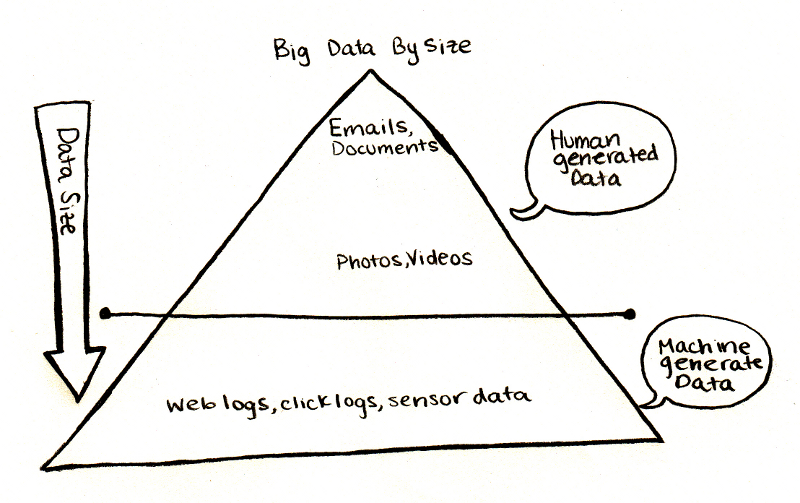 Big Data By Size
Data Size
Emails,
Documents
Human
generated
Data
Photos,Videos
Machine
generate
Data
web logs, click logs, sensor data